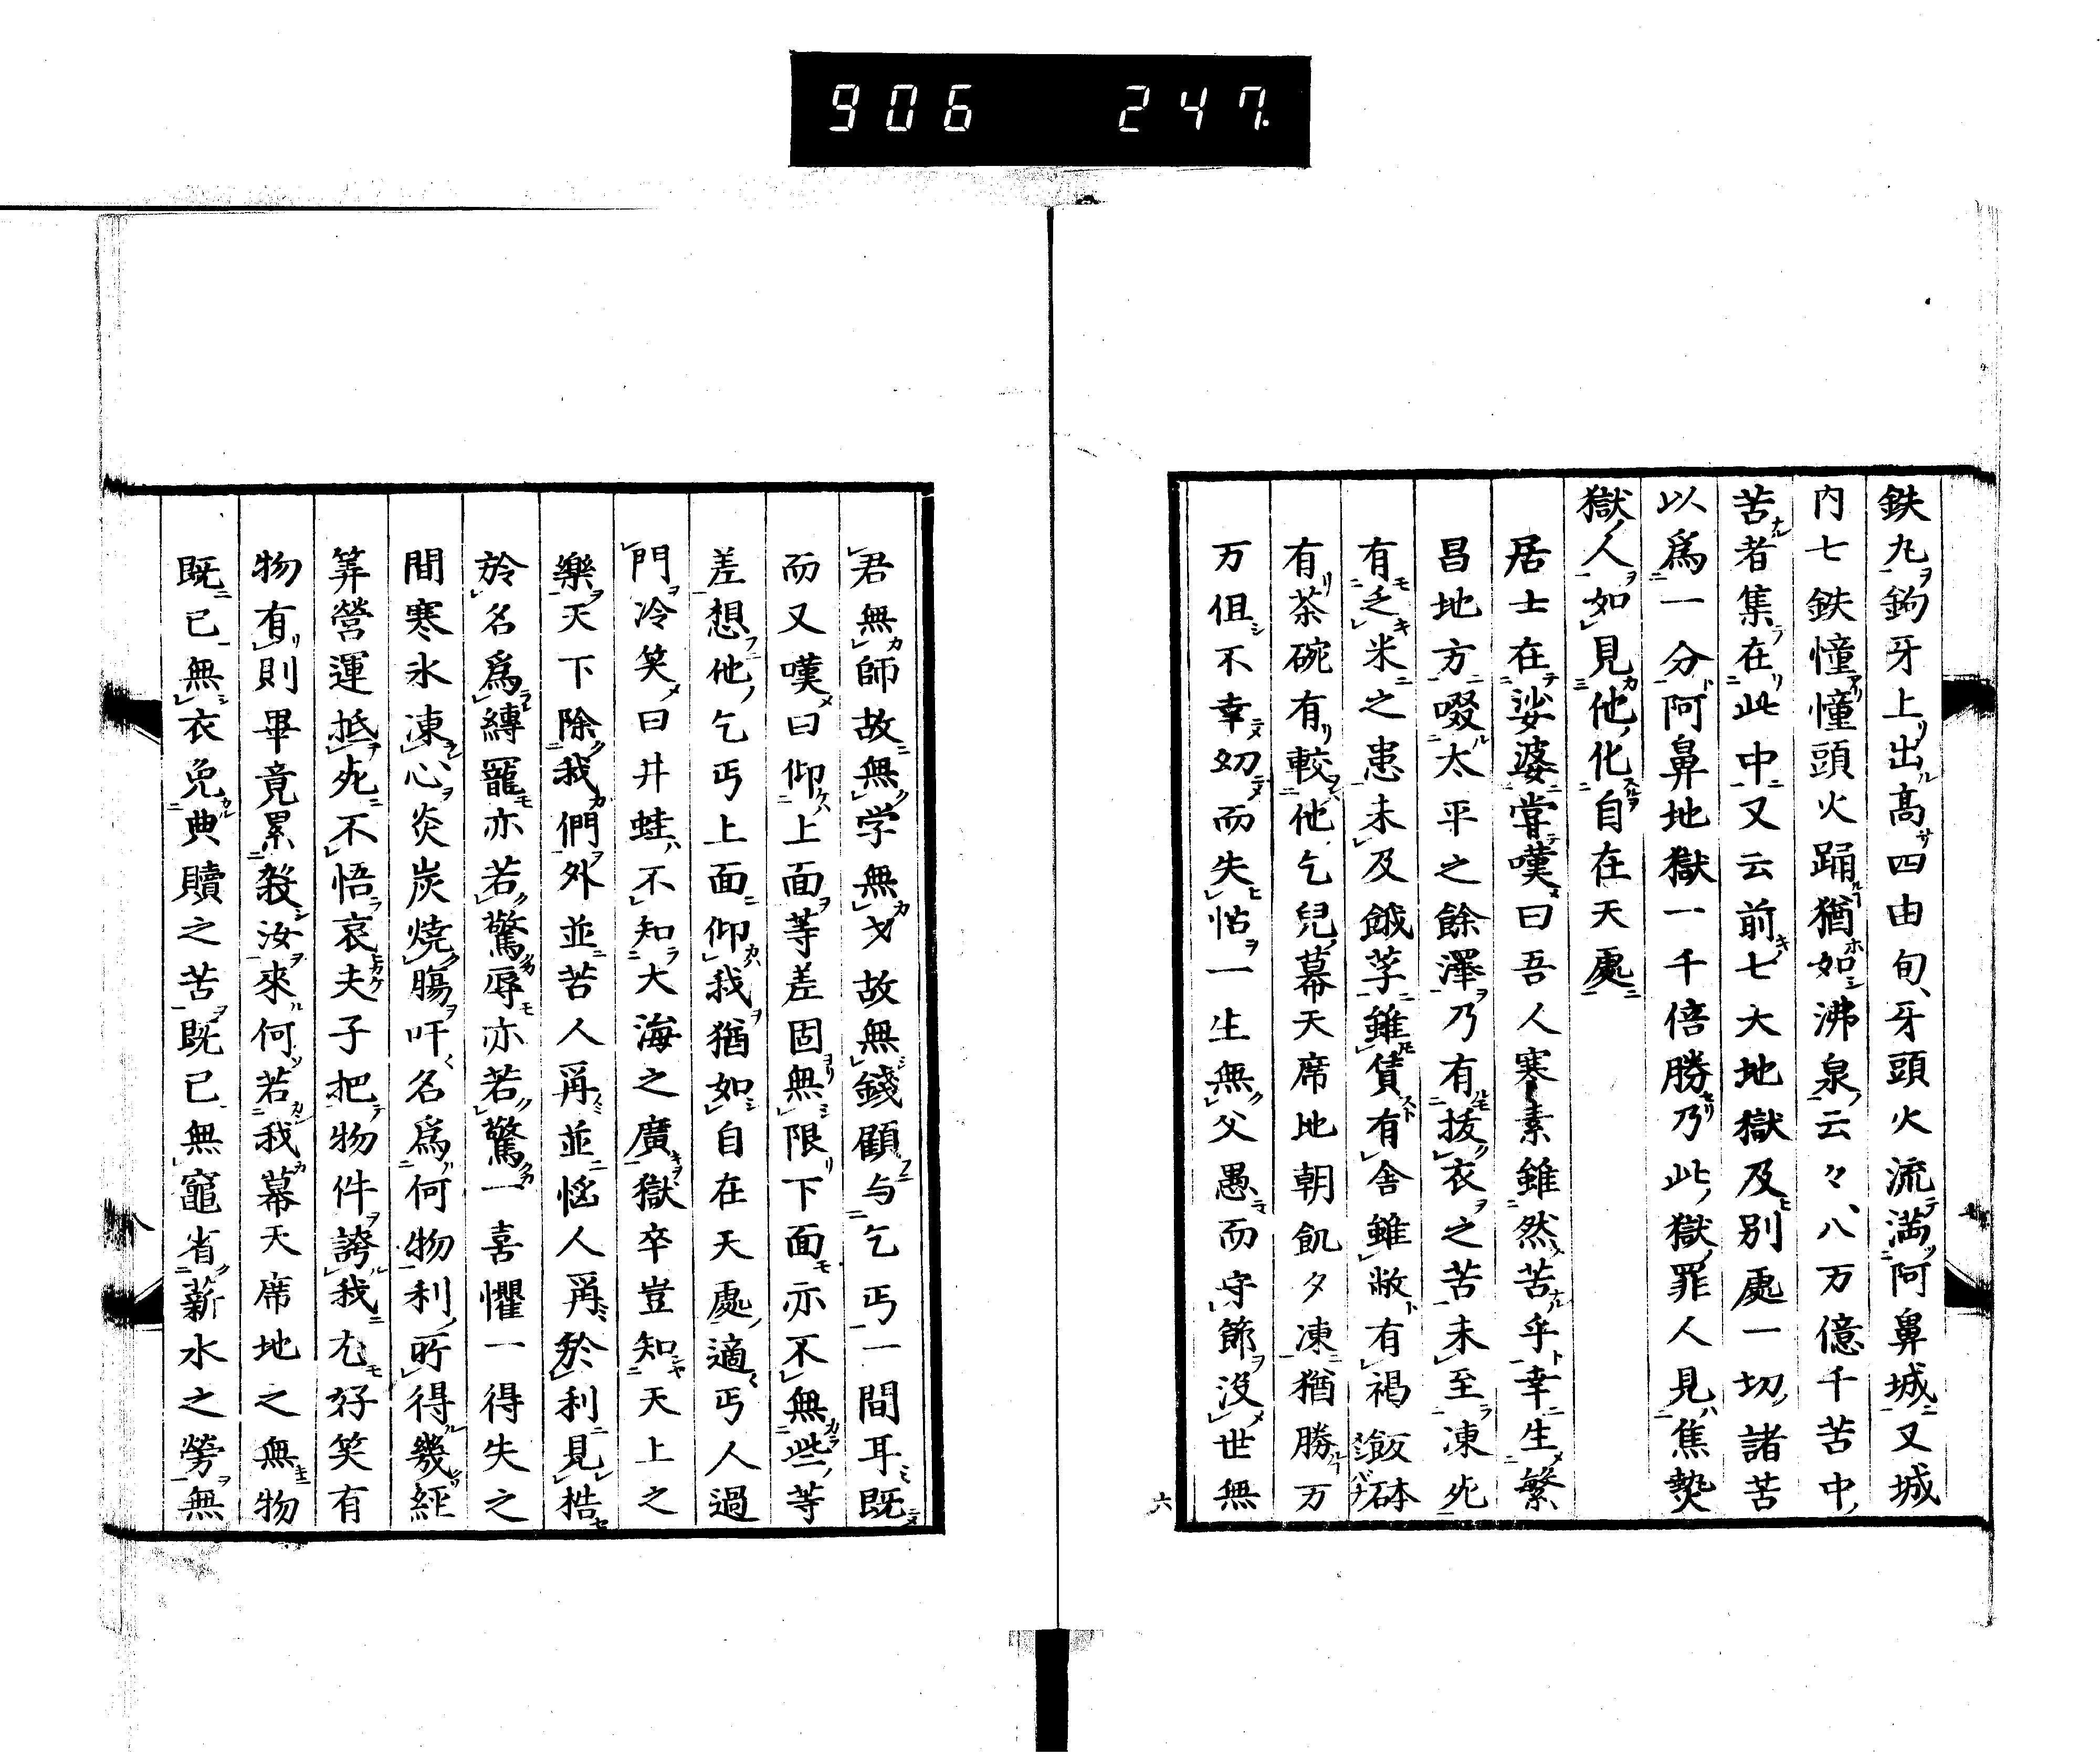 906 247
鉄丸鉤牙上出高四由旬牙頭火流満阿鼻城又城
内七鉄幢幢頭火踊猶如沸泉云々八万億千苦中
苦者集在此中又云前七大地獄及別處一切諸苦
以為一分阿鼻地獄一千倍勝乃此獄罪人見焦熱
獄人如見他化自在天處
居士在娑婆嘗嘆曰吾人寒素雖然苦乎幸生繁
昌地方啜太平之餘澤乃有抜衣之苦未至凍死
有乏米之患未及餓莩雖賃有舎雖敝有褐飯砵
有茶碗有較他乞兒幕天席地朝飢夕凍猶勝万
万但不幸幼而失怙一生無父愚而守節没世無
六
君無師故無学無才故無錢顧与乞丐一間耳既
而又嘆曰仰上面等差固無限下面亦不無些等
差想他乞丐上面仰我猶如自在天處適丐人過
門冷笑曰井蛙不知大海之廣獄卒豈知天上之
樂天下除我們外並苦人爾並悩人爾於利見梏
於名為縛寵亦若驚辱亦若驚一喜懼一得失之
間寒氷凍心炎炭焼腸吁名為何物利所得幾経
筭營運抵死不悟哀夫子把物件誇我尤好笑有
物有則畢竟累殺汝來何若我幕天席地之無物
既已無衣免典贖之苦既已無竈省薪水之労無